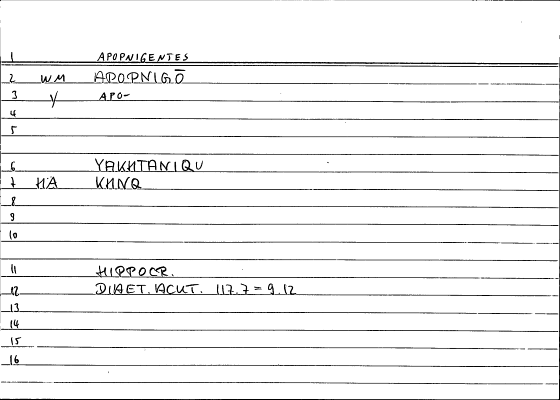 1 APOPNIGENTES
2 WM APOPNIGŌ
3 y APO-
4
5
6 YAKHTANIQU
7 HA KHNQ
8
9
10
11 HIPPOCR.
12 DIAET. ACUT. 117.7 = 9.12
13
14
15
16